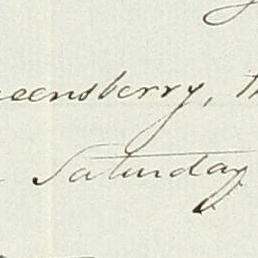 eensberry, th
Saturday